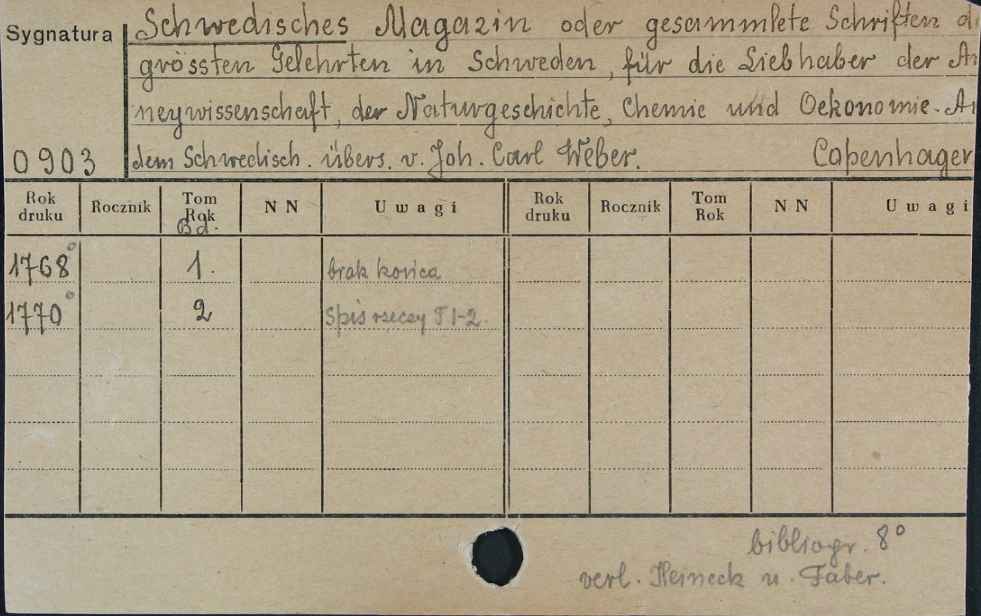 Sygnatura
Schwedisches Magazin oder gesammlete Schriften d
grössten Gelehrten in Schweden, für die Liebhaber der A
neywissenschaft, der Naturgeschichte, Chemie und Oekonomie. A
0903 dem Schwedisch. übers. v. Joh. Carl Weber. Copenhagen
Rok druku Rocznik Tom Rok Bd. NN Uwagi Rok druku Rocznik Tom Rok NN Uwagi
1768° 1. brak końca
1770° 2 Spis rzeczy T 1-2.
bibliogr. 8°
verl. Heineck u. Faber.